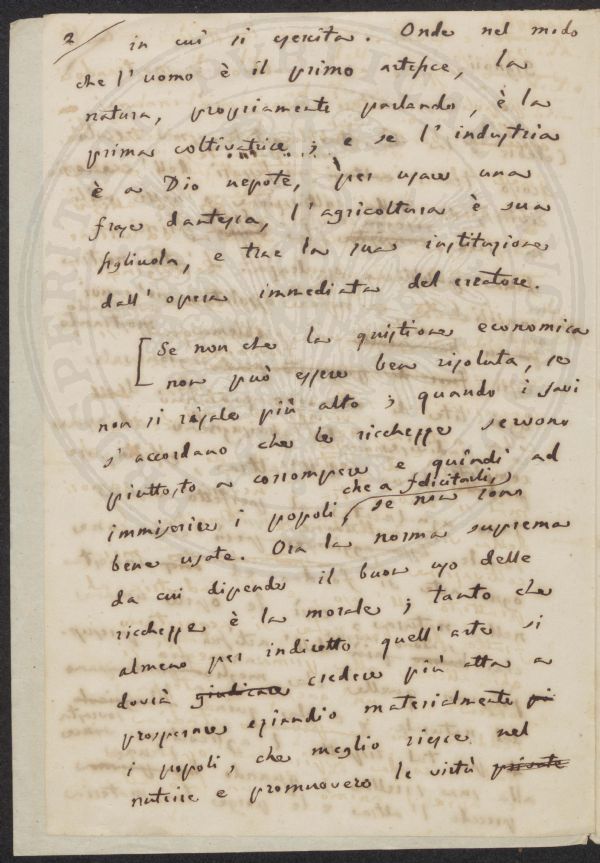 2
in cui si esercita. Onde nel modo
che l'uomo è il primo artefice, la
natura, propriamente parlando, è la
prima coltivatrice; e se l'industria
è a Dio nepote, per usare una
frase dantesca, l'agricoltura è sua
figliuola, e trae la sua instituzione
dall'opera immediata del creatore.
[Se non che la quistione economica
non può essere ben risoluta, se
non si risale più alto; quando i savi
s'accordano che le ricchezze servono
piuttosto a corrompere e quindi ad
immiserire i popoli che a felicitarli, se non sono
bene usate. Ora la norma suprema
da cui dipende il buon uso delle
ricchezze è la morale; tanto che
almeno per indiretto quell'arte si
dovrà giudicare credere più atta a
prosperare eziandio materialmente
i popoli, che meglio riesce nel
nutrire e promuovere le virtù private